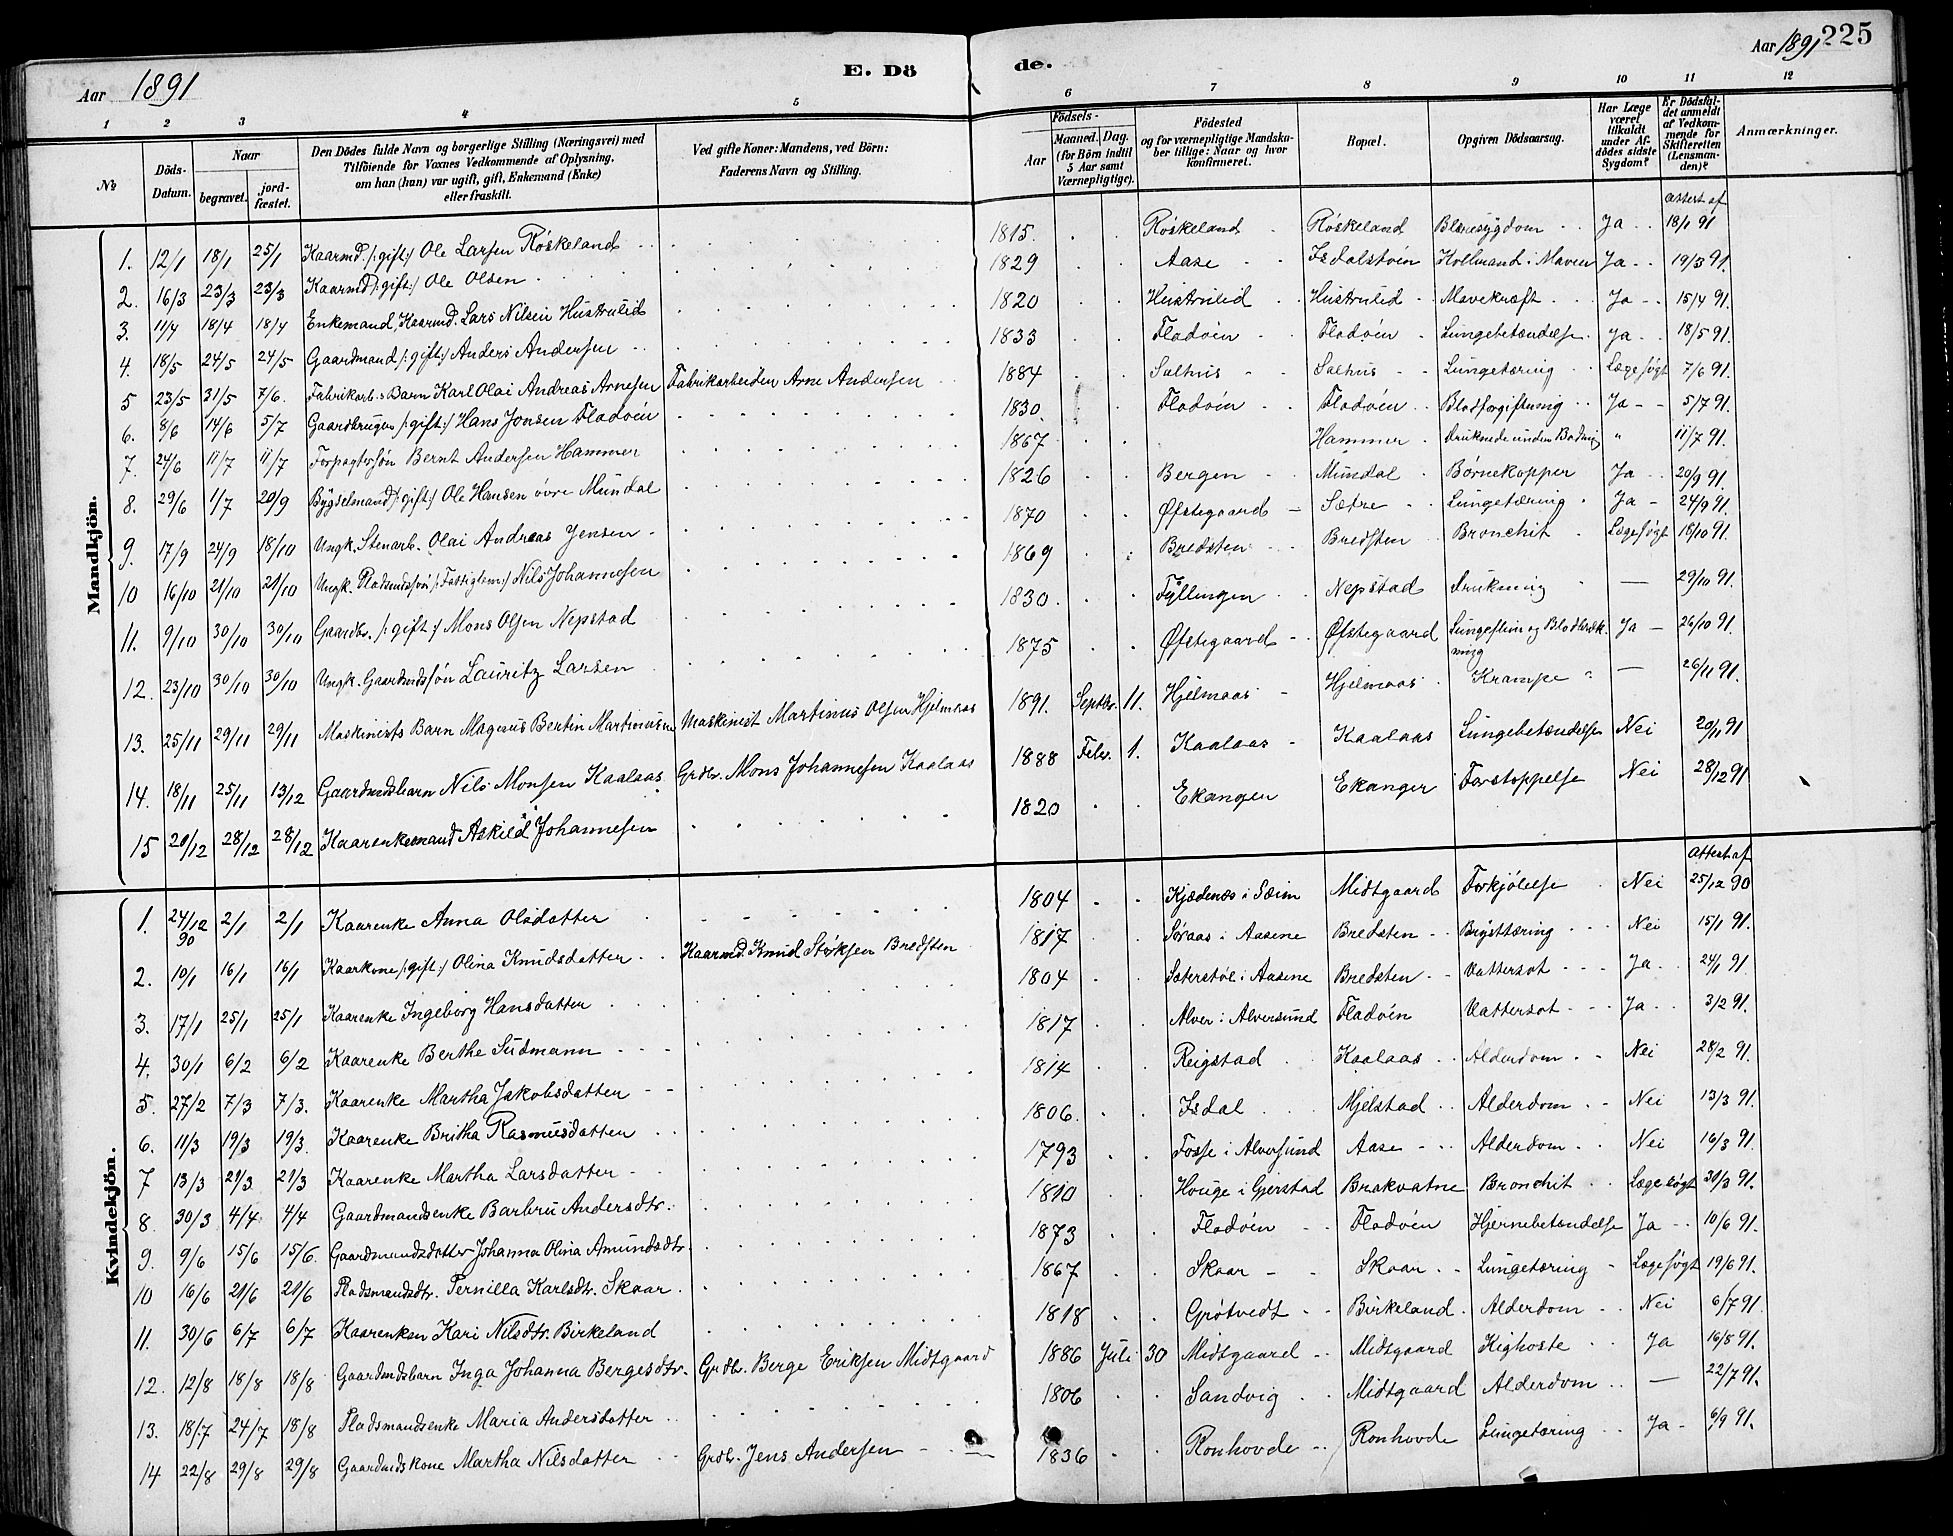 Aar 1891
E. Dö
de.
Aar 1891
225
1 2 3 4 5 6 7 8 9 10 11 12
№
Döds-Datum.
Naar
begravet.
jord-fæstet.
Den Dödes fulde Navn og borgerlige Stilling (Næringsvei) med
Tilföiende for Voxnes Vedkommende af Oplysning,
om han (hun) var ugift, gift, Enkemand (Enke)
eller fraskilt.
Ved gifte Koner: Mandens, ved Börn:
Faderens Navn og Stilling.
Födsels-
Aar
Maaned. Dag.
(for Börn indtil
5 Aar samt
Værnepligtige).
Födested
og for værnepligtige Mandska-
ber tillige: Naar og hvor
konfirmeret.
Bopæl.
Opgiven Dödsaarsag.
Har Læge
været
tilkaldt
under Af-
dödes sidste
Sygdom?
Er Dödsfal-
det anmeldt
af Vedkom-
mende for
Skifteretten
(Lensman-
den)?
Anmærkninger.
Mandkjön.
attest af
1. 12/1 18/1 25/1 Kaarmd. /: gift :/ Ole Larsen Röskeland 1815. Röskeland Röskeland Blæresygdom Ja 18/1 91
2. 16/3 23/3 23/3 Kaarmd /: gift :/ Ole Olsen 1829 Aase Isdalstöen Koldbrand i Maven Ja 19/3 91.
3. 11/4 18/4 18/4 Enkemand, Kaarmd. Lars Nilsen Hustrulid 1820 Hustrulid Hustrulid Mavekræft Ja 15/4 91.
4. 18/5 24/5 24/5 Gaardmand /: gift :/ Anders Andersen 1833 Fladöen Fladöen Lungebetændelse. Ja 18/5 91.
5 23/5 31/5 7/6. Fabrikarb.s Barn Karl Olai Andreas Arnesen Fabrikarbeider Arne Andersen 1884 Salhus Salhus Lungetæring Læge søgt 7/6 91.
6. 8/6 14/6 5/7 Gaardbruger /: gift :/ Hans Jonsen Fladöen 1830. Fladöen Fladöen Blodforgiftning Ja 5/7 91.
7. 24/6 11/7 11/7 Forpagtersön Bernt Andersen Hammer 1867 Hammer Druknede under Badning " 11/7 91.
8. 29/6 1/7 20/9 Bygselmand /: gift :/ Ole Hansen övre Mundal 1826 Bergen Mundal Börnekopper Ja 20/9 91.
9. 17/9 24/9 18/10 Ungk. Stenarb. Olai Andreas Jensen 1870 Øfstegaard Sætre Lungetæring Ja 24/9 91.
10 16/10 21/10 21/10 Ungk. Pladsmdssön /: Fattiglem :/ Nils Johannesen 1869 Bredsten Bredsten Bronchit Læge søgt 16/10 91.
11. 9/10 30/10 30/10 Gaardbr. /: gift :/ Mons Olsen Nepstad 1830. Fyllingen Nepstad Drukning — 29/10 91.
12. 23/10 30/10 30/10 Ungk. Gaardmdssön Lauritz Larsen 1875 Øfstegaard Øfstegaard Lungeslim og Blodbrækning Ja 26/10 91.
13. 25/11 29/11 29/11 Maskinists Barn Magnus Bertin Martinussen Maskinist Martinus Olsen Hjelmaas 1891. Septbr. 11. Hjelmaas Hjelmaas Krampe — 26/11 91.
14. 18/11 25/11 13/12 Gaardmdsbarn Nils Monsen Kaalaas Grdbr. Mons Johannesen Kaalaas 1888 Febr. 1. Kaalaas Kaalaas Lungebetændelse Nei 20/11 91
15 20/12 28/12 28/12 Kaarenkemand Askild Johannesen 1820 Ekanger Ekanger Forstoppelse Nei 28/12 91
Kvindekjön.
attest af
1. 24/12 90 2/1 2/1 Kaarenke Anna Olsdatter 1804 Kjædenes i Sæim Midtgaard Forkjölelse Nei 25/12 90
2. 10/1 16/1 16/1 Kaarkone /: gift :/ Olina Knudsdatter Kaarmd. Knud Störksen Bredsten 1817 Söraas i Aasene Bredsten Brysttæring Nei 15/1 91.
3. 17/1 25/1 25/1 Kaarenke Ingeborg Hansdatter 1804 Sæterstöl i Aasene Bredsten Vattersot Ja 24/1 91
4. 30/1 6/2 6/2 Kaarenke Berthe Sudmann 1817 Alver i Alversund Fladöen Vattersot Ja 3/2 91.
5. 27/2 7/3 7/3. Kaarenke Martha Jakobsdatter 1814 Reigstad Kaalaas Alderdom Nei 28/2 91.
6. 11/3 19/3 19/3. Kaarenke Britha Rasmusdatter 1806. Isdal Mjelstad Alderdom Nei 13/3 91.
7 13/3 21/3 21/3 Kaarenke Martha Larsdatter 1793 Fosse i Alversund Aase Alderdom Nei 16/3 91.
8. 30/3 4/4 4/4 Gaardmandsenke Barbru Andersdtr. 1810 Houge i Gjerstad Brakvatne Bronchit Læge søgt 30/3 91.
9. 9/6 15/6 15/6. Gaardmandsdatter Johanna Olina Amundsdtr. 1873 Fladöen Fladöen Hjernebetændelse Ja 10/6 91.
10 16/6 21/6 21/6 Pladsmandsdtr. Pernilla Karlsdtr. Skaar 1867 Skaar Skaar Lungetæring Læge søgt 19/6 91.
11. 30/6 6/7 6/7 Kaarenken Kari Nilsdtr. Birkeland 1818 Grötvedt Birkeland Alderdom Nei 6/7 91.
12. 12/8 18/8 18/8 Gaardmdsbarn Inga Johanna Bergesdtr. Grdbr. Berge Eriksen Midtgaard 1886 Juli 30 Midtgaard Midtgaard Kighoste Ja 16/8 91.
13. 18/7 24/7 18/8 Pladsmandsenke Maria Andersdatter 1806 Sandvig Midtgaard Alderdom — 22/7 91.
14 22/8 29/8 29/8 Gaardmdskone Martha Nilsdatter Grdbr. Jens Andersen 1836 Ronhovde Ronhovde Lungetæring Ja 6/9 91.